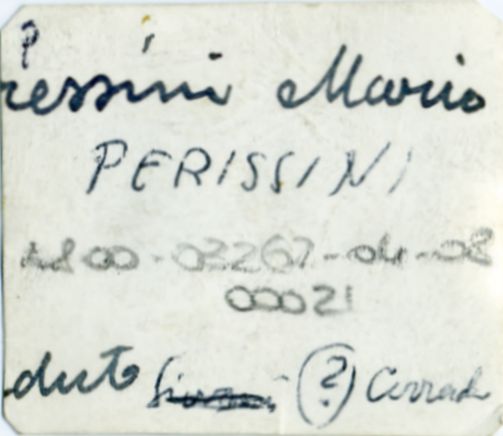 P
ressini Mario
PERISSINI
00-03267-04-08
00021
duto (?) Corrado